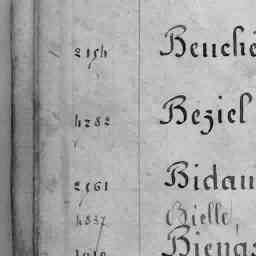 2154 Beuché
4282 Beziel
2561 Bidau
4837 Bielle,
Biengs